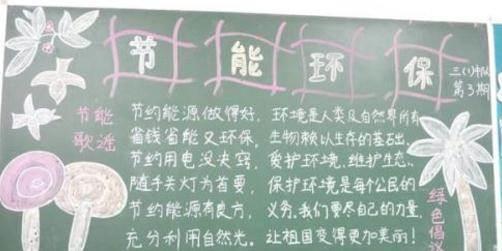 节能环保
三(1)中队
第3期
节能
歌谣
节约能源做得好，
省钱省能又环保。
节约用电没决窍，
随手关灯为首要，
节约能源有良方，
充分利用自然光。
环境是人类及自然界所有
生物赖以生存的基础。
爱护环境、维护生态、
保护环境是每个公民的
义务。我们要尽自己的力量，
让祖国变得更加美丽！
绿色倡议